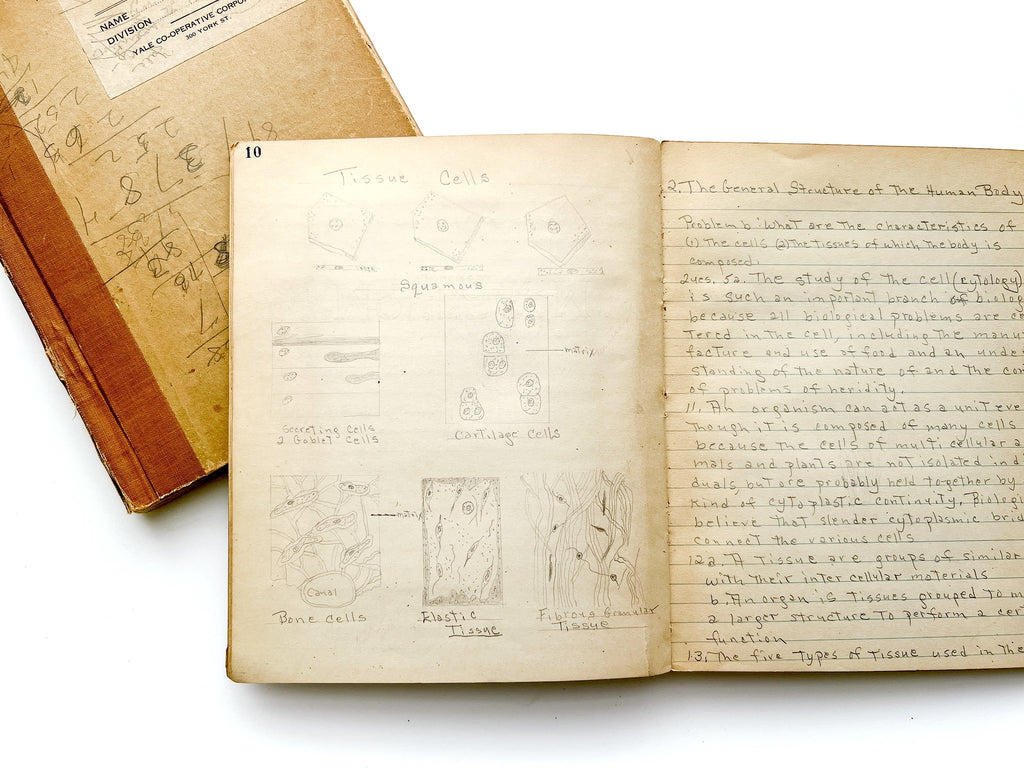 NAME
DIVISION
YALE CO-OPERATIVE CORPOR
300 YORK ST.
10
Tissue Cells
Squamous
matrix
Secreting Cells
2 Goblet Cells
Cartilage Cells
matrix
Canal
Bone Cells
Elastic
Tissue
Fibrous Granular
Tissue
2. The General Structure of The Human Body
Problem b: What are the characteristics of
(1) The cells (2) The tissues of which the body is
composed.
2ues. 5a. The study of the cell (cytology)
is such an important branch of biolog
because all biological problems are ce
tered in the cell, including the manu
facture and use of food and an under
standing of the nature of and the con
of problems of heridity.
11. An organism can act as a unit eve
though it is composed of many cells
because the cells of multi cellular a
mals and plants are not isolated indi
duals, but are probably held together by
kind of cytoplastic continuity. Biologi
believe that slender cytoplasmic brid
connect the various cells
12a. A tissue are groups of similar
with their inter cellular materials
b. An organ is tissues grouped to m
a larger structure to perform a cer
function
13. The five types of tissue used in the